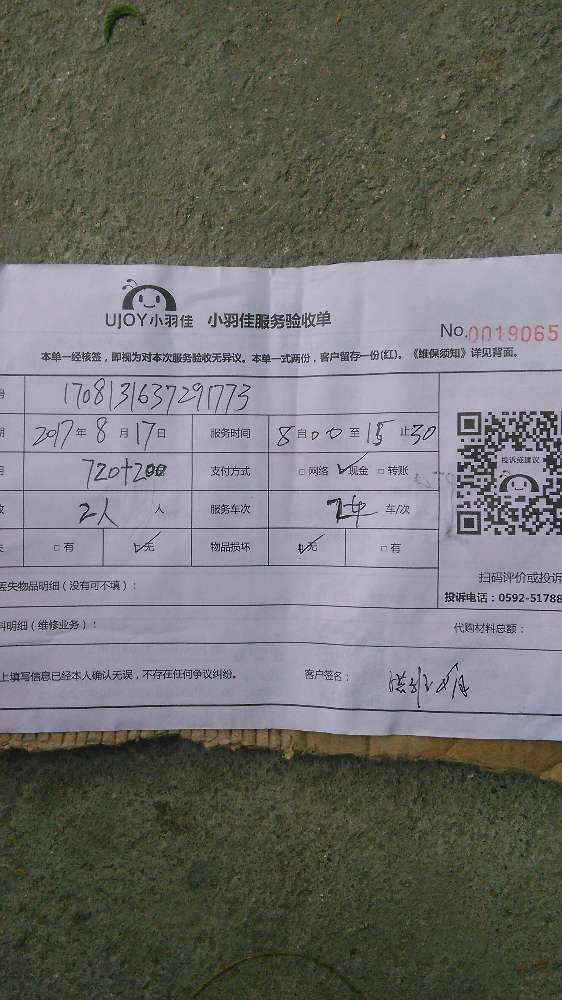 UJOY小羽佳 小羽佳服务验收单
No.0019065
本单一经核签，即视为对本次服务验收无异议。本单一式两份，客户留存一份(红)。《维保须知》详见背面。
号 1708131637291773
期 2017年8月17日 服务时间 8自00至15止30
用 720+200 支付方式 □网络 ✓现金 □转账
投诉或建议
数 2人 人 服务车次 2车 车/次
失 □有 ✓无 物品损坏 ✓无 □有
扫码评价或投诉
丢失物品明细（没有可不填）：
投诉电话：0592-51788
料明细（维修业务）： 代购材料总额：
上填写信息已经本人确认无误，不存在任何争议纠纷。 客户签名：